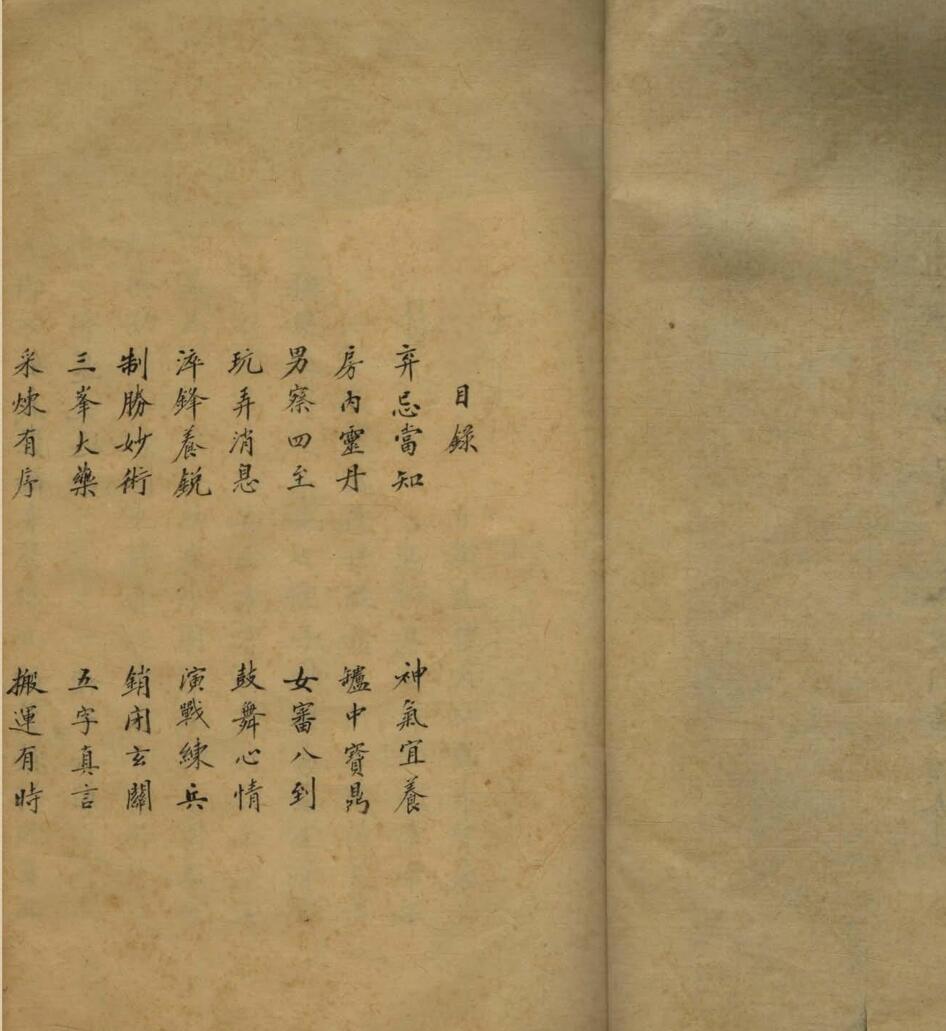 目錄
弃忌當知 神氣宜養
房內靈丹 鑪中寶鼎
男察四至 女審八到
玩弄消息 鼓舞心情
淬鋒養鋭 演戰練兵
制勝妙術 銷閉玄關
三峯大藥 五字真言
采煉有序 搬運有時